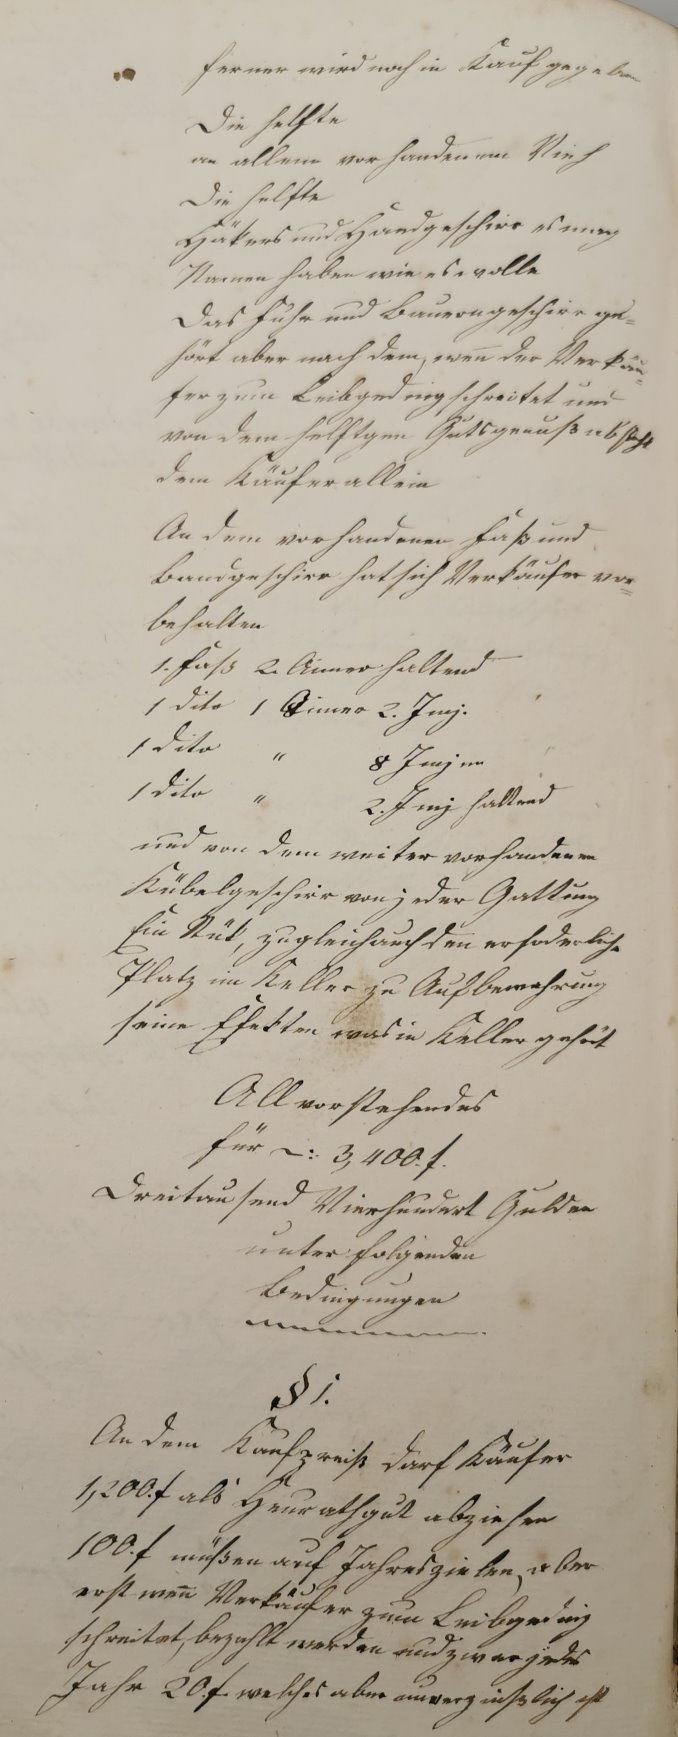 ferner wird noch in Kauf gegeben
Die helfte
an allem vorhandenem Vieh
Die helfte
und Handgeschirr es mag
Namen haben wie es wolle
Das Fuhr und Bauerngeschirr ge=
hört aber nach dem, wen̅ der Verkäu=
fer zum Leibgeding schreitet und
von dem helftgen Gutsgenuß absteht
dem Käufer allein
An dem vorhandenen Faß und
Bandgeschirr hat sich Verkäufer vor=
behalten
1. Faß 2. Aimer haltend
1 dito 1 Aimer 2. Imj.
1 dito " 8 Imj
1 dito " 2. Imj haltend
und von dem weiter vorhandenen
Kübelgeschirr von jeder Gattung
Ein Stük, zugleich auch den erforderliche
Platz im Keller zu Aufbewahrung
seine Efekten was in Keller gehört
All vorstehendes
für ~: 3,400. f.
Dreitausend Vierhundert Gulden
unter folgenden
Bedingungen
§ 1.
An dem Kaufpreiß darf Käufer
1,200. f als Heurathgut abziehen
100. f müßen auf Jahreszielen, aber
erst wen̅ Verkäufer zum Leibgeding
schreitet, bezahlt werden und zwar jedes
Jahr 20 f. welches aber unverzinßlich ist